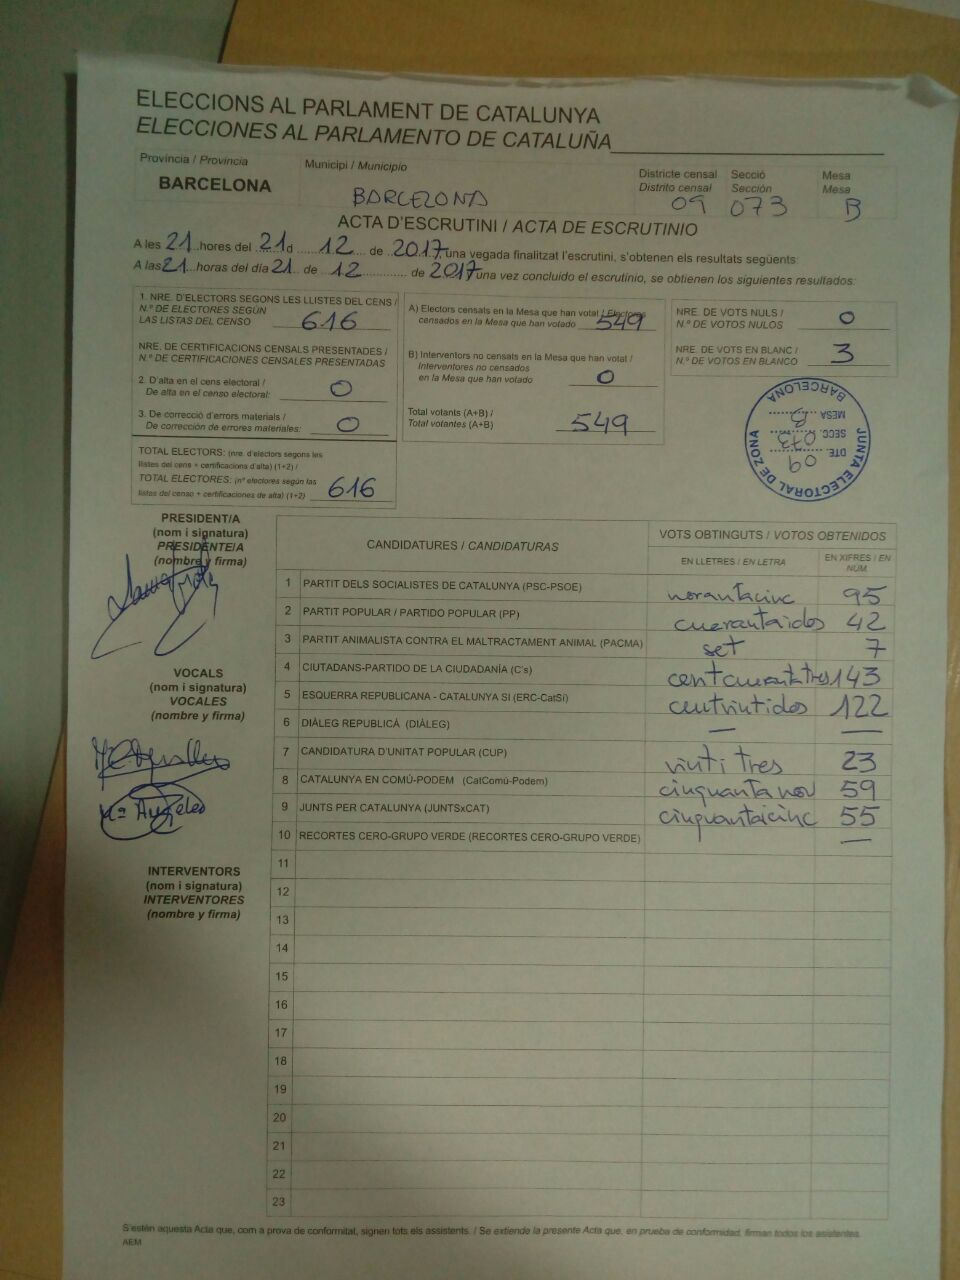 ELECCIONS AL PARLAMENT DE CATALUNYA
ELECCIONES AL PARLAMENTO DE CATALUÑA
Província / Provincia
BARCELONA
Municipi / Municipio
BARCELONA
Districte censal
Distrito censal
09
Secció
Sección
073
Mesa
Mesa
B
ACTA D'ESCRUTINI / ACTA DE ESCRUTINIO
A les 21 hores del 21 d 12 de 2017, una vegada finalitzat l'escrutini, s'obtenen els resultats següents:
A las 21 horas del día 21 de 12 de 2017 una vez concluido el escrutinio, se obtienen los siguientes resultados:
1. NRE. D'ELECTORS SEGONS LES LLISTES DEL CENS /
N.º DE ELECTORES SEGÚN
LAS LISTAS DEL CENSO 616
NRE. DE CERTIFICACIONS CENSALS PRESENTADES /
N.º DE CERTIFICACIONES CENSALES PRESENTADAS
2. D'alta en el cens electoral /
De alta en el censo electoral: 0
3. De correcció d'errors materials /
De corrección de errores materiales: 0
TOTAL ELECTORS: (nre. d'electors segons les
llistes del cens + certificacions d'alta) (1+2) /
TOTAL ELECTORES: (nº electores según las
listas del censo + certificaciones de alta) (1+2) 616
A) Electors censats en la Mesa que han votat / Electores
censados en la Mesa que han votado 549
B) Interventors no censats en la Mesa que han votat /
Interventores no censados
en la Mesa que han votado 0
Total votants (A+B) /
Total votantes (A+B) 549
NRE. DE VOTS NULS /
N.º DE VOTOS NULOS 0
NRE. DE VOTS EN BLANC /
N.º DE VOTOS EN BLANCO 3
JUNTA ELECTORAL DE ZONA
BARCELONA
DTE. 09
SECC. 073
MESA B
PRESIDENT/A
(nom i signatura)
PRESIDENTE/A
(nombre y firma)
VOCALS
(nom i signatura)
VOCALES
(nombre y firma)
Mª Angeles
INTERVENTORS
(nom i signatura)
INTERVENTORES
(nombre y firma)
CANDIDATURES / CANDIDATURAS
VOTS OBTINGUTS / VOTOS OBTENIDOS
EN LLETRES / EN LETRA
EN XIFRES / EN NÚM.
1 PARTIT DELS SOCIALISTES DE CATALUNYA (PSC-PSOE) norantacinc 95
2 PARTIT POPULAR / PARTIDO POPULAR (PP) cuarantaidos 42
3 PARTIT ANIMALISTA CONTRA EL MALTRACTAMENT ANIMAL (PACMA) set 7
4 CIUTADANS-PARTIDO DE LA CIUDADANÍA (C's) 143
5 ESQUERRA REPUBLICANA - CATALUNYA SÍ (ERC-CatSí) centvintidos 122
6 DIÀLEG REPUBLICÀ (DIÀLEG) — —
7 CANDIDATURA D'UNITAT POPULAR (CUP) vinti tres 23
8 CATALUNYA EN COMÚ-PODEM (CatComú-Podem) cinquanta nou 59
9 JUNTS PER CATALUNYA (JUNTSxCAT) cinquantaicinc 55
10 RECORTES CERO-GRUPO VERDE (RECORTES CERO-GRUPO VERDE) —
11
12
13
14
15
16
17
18
19
20
21
22
23
S'estén aquesta Acta que, com a prova de conformitat, signen tots els assistents. / Se extiende la presente Acta que, en prueba de conformidad, firman todos los asistentes.
AEM